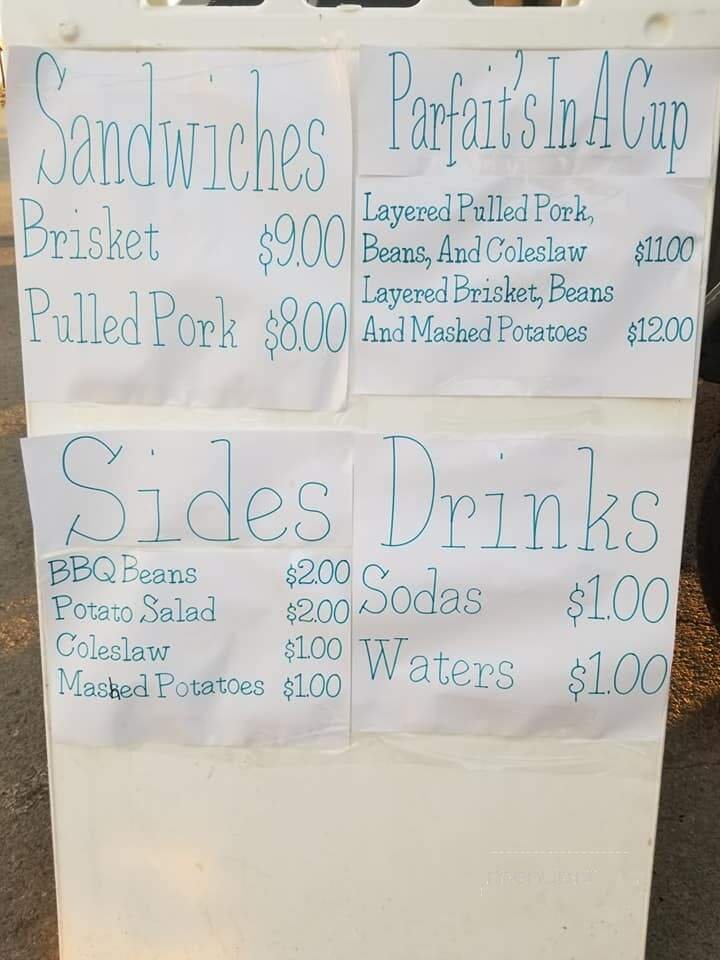 Sandwiches
Brisket $9.00
Pulled Pork $8.00
Parfait's In A Cup
Layered Pulled Pork,
Beans, And Coleslaw $11.00
Layered Brisket, Beans
And Mashed Potatoes $12.00
Sides
BBQ Beans $2.00
Potato Salad $2.00
Coleslaw $1.00
Mashed Potatoes $1.00
Drinks
Sodas $1.00
Waters $1.00